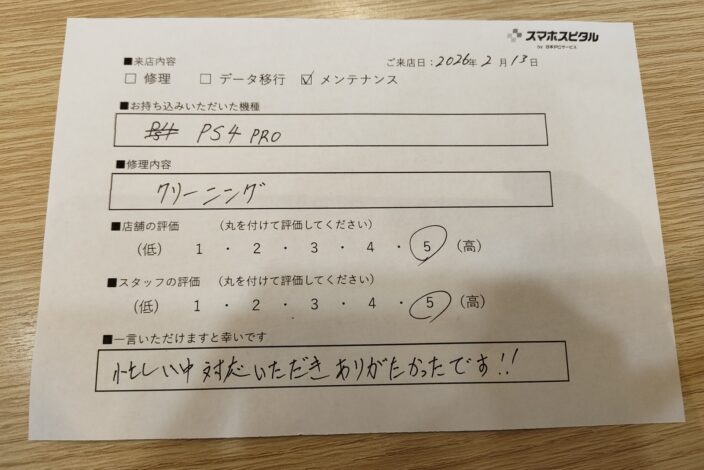 スマホスピタル
by 日本PCサービス
■来店内容
ご来店日：2026年 2月 13日
□ 修理 □ データ移行 ☑ メンテナンス
■お持ち込みいただいた機種
PS4 PRO
■修理内容
クリーニング
■店舗の評価 （丸を付けて評価してください）
（低） 1 ・ 2 ・ 3 ・ 4 ・ 5 （高）
■スタッフの評価 （丸を付けて評価してください）
（低） 1 ・ 2 ・ 3 ・ 4 ・ 5 （高）
■一言いただけますと幸いです
忙しい中対応いただきありがたかったです!!